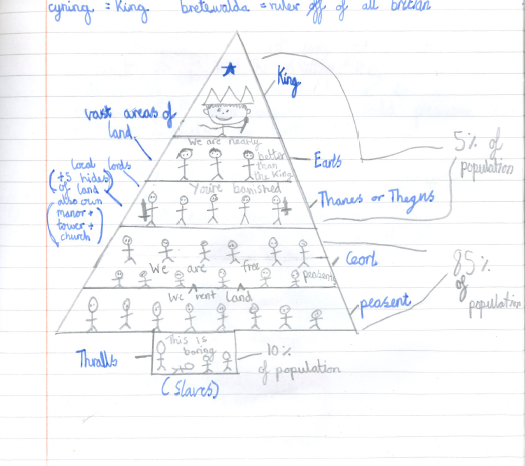 cyning = King    bretwalda = ruler off of all britian
King
vast areas of
land
We are nearly
better
than
the King
Earls
5% of
population
Local lords
(+5 hides
of land)
also own
manor +
tower +
church
You're banished
Thanes or Thegns
Ceorl
We are free
peasents
85%
of
population
We rent land
peasent
Thralls
This is
boring
10%
of population
(Slaves)